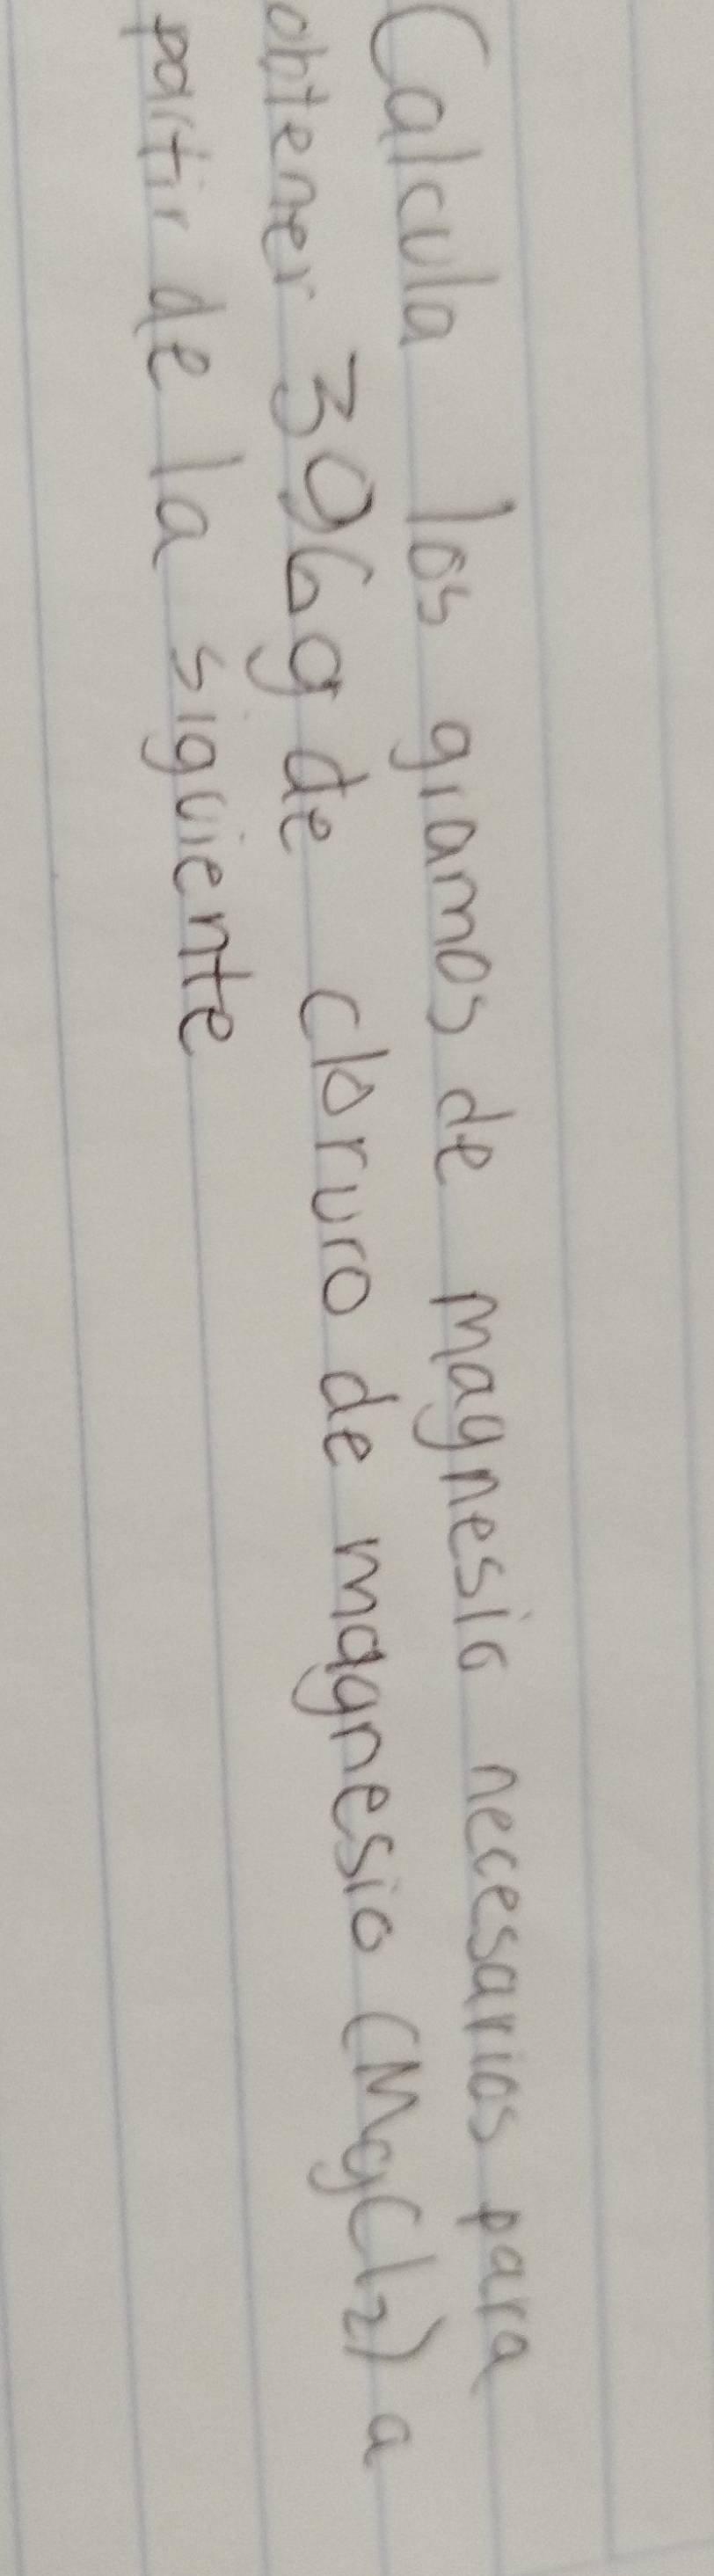 Calcula los gramos de magnesio necesarios para
obtener 396g de cloruro de magnesio (MgCl2) a
partir de la siguiente